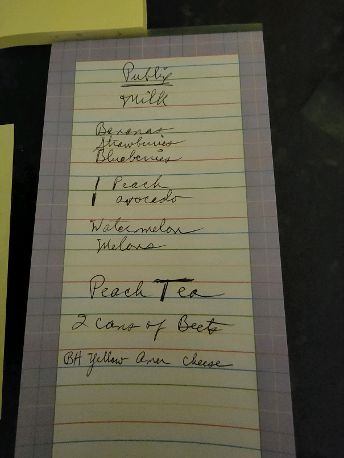 Publix
Milk
Bananas
Strawburies
Blueberries
1 Peach
1 avocado
Watermelon
Melons
Peach Tea
2 cans of Beets
BH Yellow Amer cheese